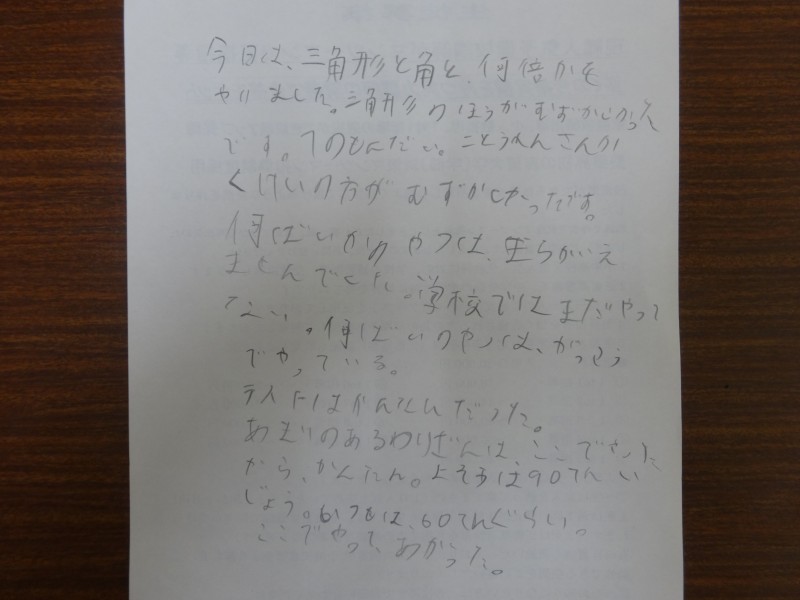 今日は、三角形と角と、何倍かを
やりました。三角形のほうがむずかしかった
です。1のもんだい。ことうへんさんか
くけいの方がむずかしかったです。
何ばいかのやつは、まちがえ
ませんでした。学校ではまだやって
ない。何ばいのやつは、がっこう
でやっている。
テストはかんたんだった。
あまりのあるわりざんは、ここでやった
から、かんたん。よそうは90てんい
じょう。いつもは、60てんぐらい。
ここでやって、あがった。